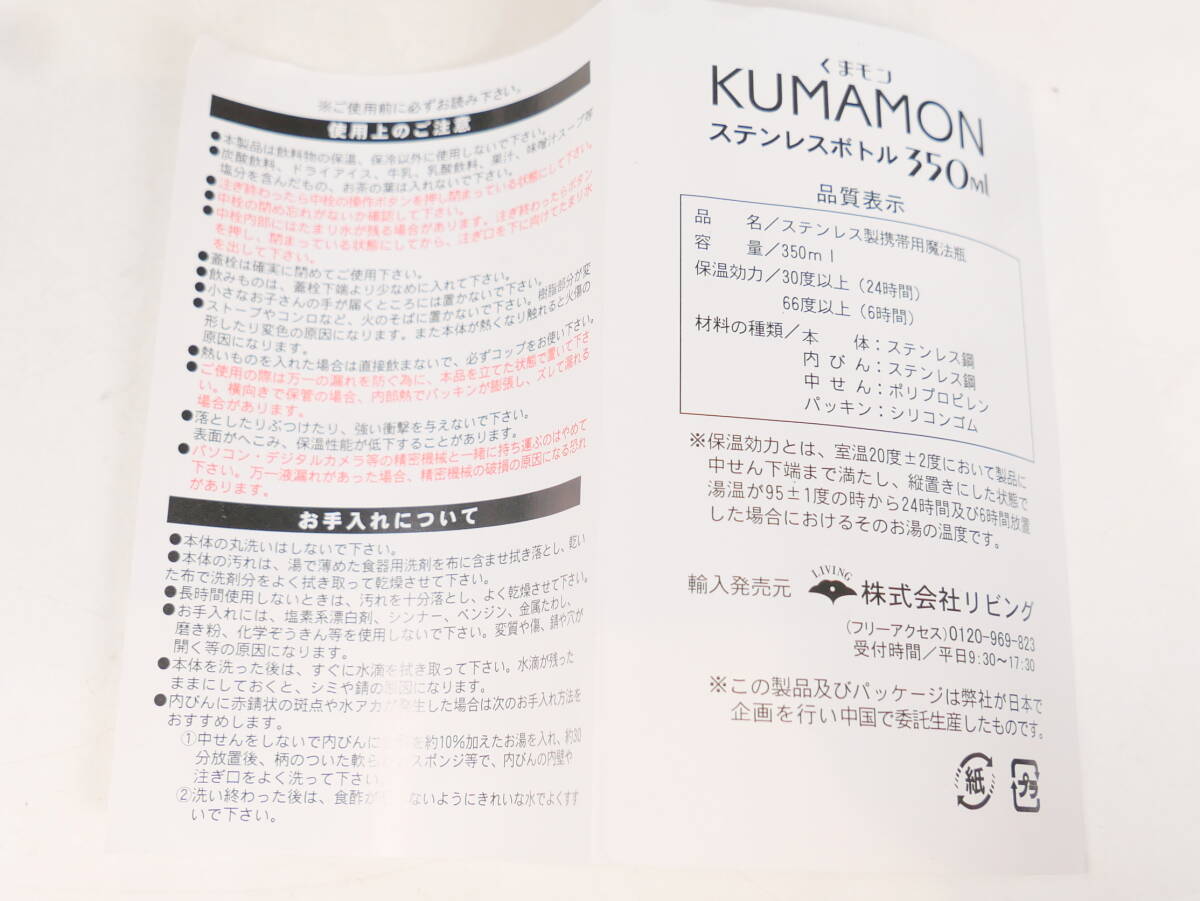 ※ご使用前に必ずお読み下さい。
使用上のご注意
●本製品は飲料物の保温、保冷以外に使用しないで下さい。
●炭酸飲料、ドライアイス、牛乳、乳酸飲料、果汁、味噌汁スープ等
塩分を含んだもの、お茶の葉は入れないで下さい。
●注ぎ終わったら中栓の操作ボタンを押し閉まっている状態にして下さい。
●中栓の閉め忘れがないか確認して下さい。
●中栓内部にはたまり水が残る場合があります。注ぎ終わったらボタン
を押し、閉まっている状態にしてから、注ぎ口を下に向けてたまり水
を出して下さい。
●蓋栓は確実に閉めてご使用下さい。
●飲みものは、蓋栓下端より少なめに入れて下さい。
●小さなお子さんの手が届くところには置かないで下さい。
●ストーブやコンロなど、火のそばに置かないで下さい。樹脂部分が変
形したり変色の原因になります。また本体が熱くなり触れると火傷の
原因になります。
●熱いものを入れた場合は直接飲まないで、必ずコップをお使い下さい。
●ご使用の際は万一の漏れを防ぐ為に、本品を立てた状態で置いて下さ
い。横向きで保管の場合、内部熱でパッキンが膨張し、ズレて漏れる
場合があります。
●落としたりぶつけたり、強い衝撃を与えないで下さい。
表面がへこみ、保温性能が低下することがあります。
●パソコン・デジタルカメラ等の精密機械と一緒に持ち運ぶのはやめて
下さい。万一液漏れがあった場合、精密機械の破損の原因になる恐れ
があります。
お手入れについて
●本体の丸洗いはしないで下さい。
●本体の汚れは、湯で薄めた食器用洗剤を布に含ませ拭き落とし、乾い
た布で洗剤分をよく拭き取って乾燥させて下さい。
●長時間使用しないときは、汚れを十分落とし、よく乾燥させて下さい。
●お手入れには、塩素系漂白剤、シンナー、ベンジン、金属たわし、
磨き粉、化学ぞうきん等を使用しないで下さい。変質や傷、錆や穴が
開く等の原因になります。
●本体を洗った後は、すぐに水滴を拭き取って下さい。水滴が残った
ままにしておくと、シミや錆の原因になります。
●内びんに赤錆状の斑点や水アカが発生した場合は次のお手入れ方法を
おすすめします。
①中せんをしないで内びんに を約10%加えたお湯を入れ、約30
分放置後、柄のついた軟ら スポンジ等で、内びんの内壁や
注ぎ口をよく洗って下さい。
②洗い終わった後は、食酢が ないようにきれいな水でよくすす
いで下さい。
くまモン
KUMAMON
ステンレスボトル 350ml
品質表示
品　名／ステンレス製携帯用魔法瓶
容　量／350ml
保温効力／30度以上（24時間）
66度以上（6時間）
材料の種類／本　体：ステンレス鋼
内びん：ステンレス鋼
中せん：ポリプロピレン
パッキン：シリコンゴム
※保温効力とは、室温20度±2度において製品に
中せん下端まで満たし、縦置きにした状態で
湯温が95±1度の時から24時間及び6時間放置
した場合におけるそのお湯の温度です。
輸入発売元 LIVING 株式会社リビング
（フリーアクセス）0120-969-823
受付時間／平日9:30～17:30
※この製品及びパッケージは弊社が日本で
企画を行い中国で委託生産したものです。
紙 プラ